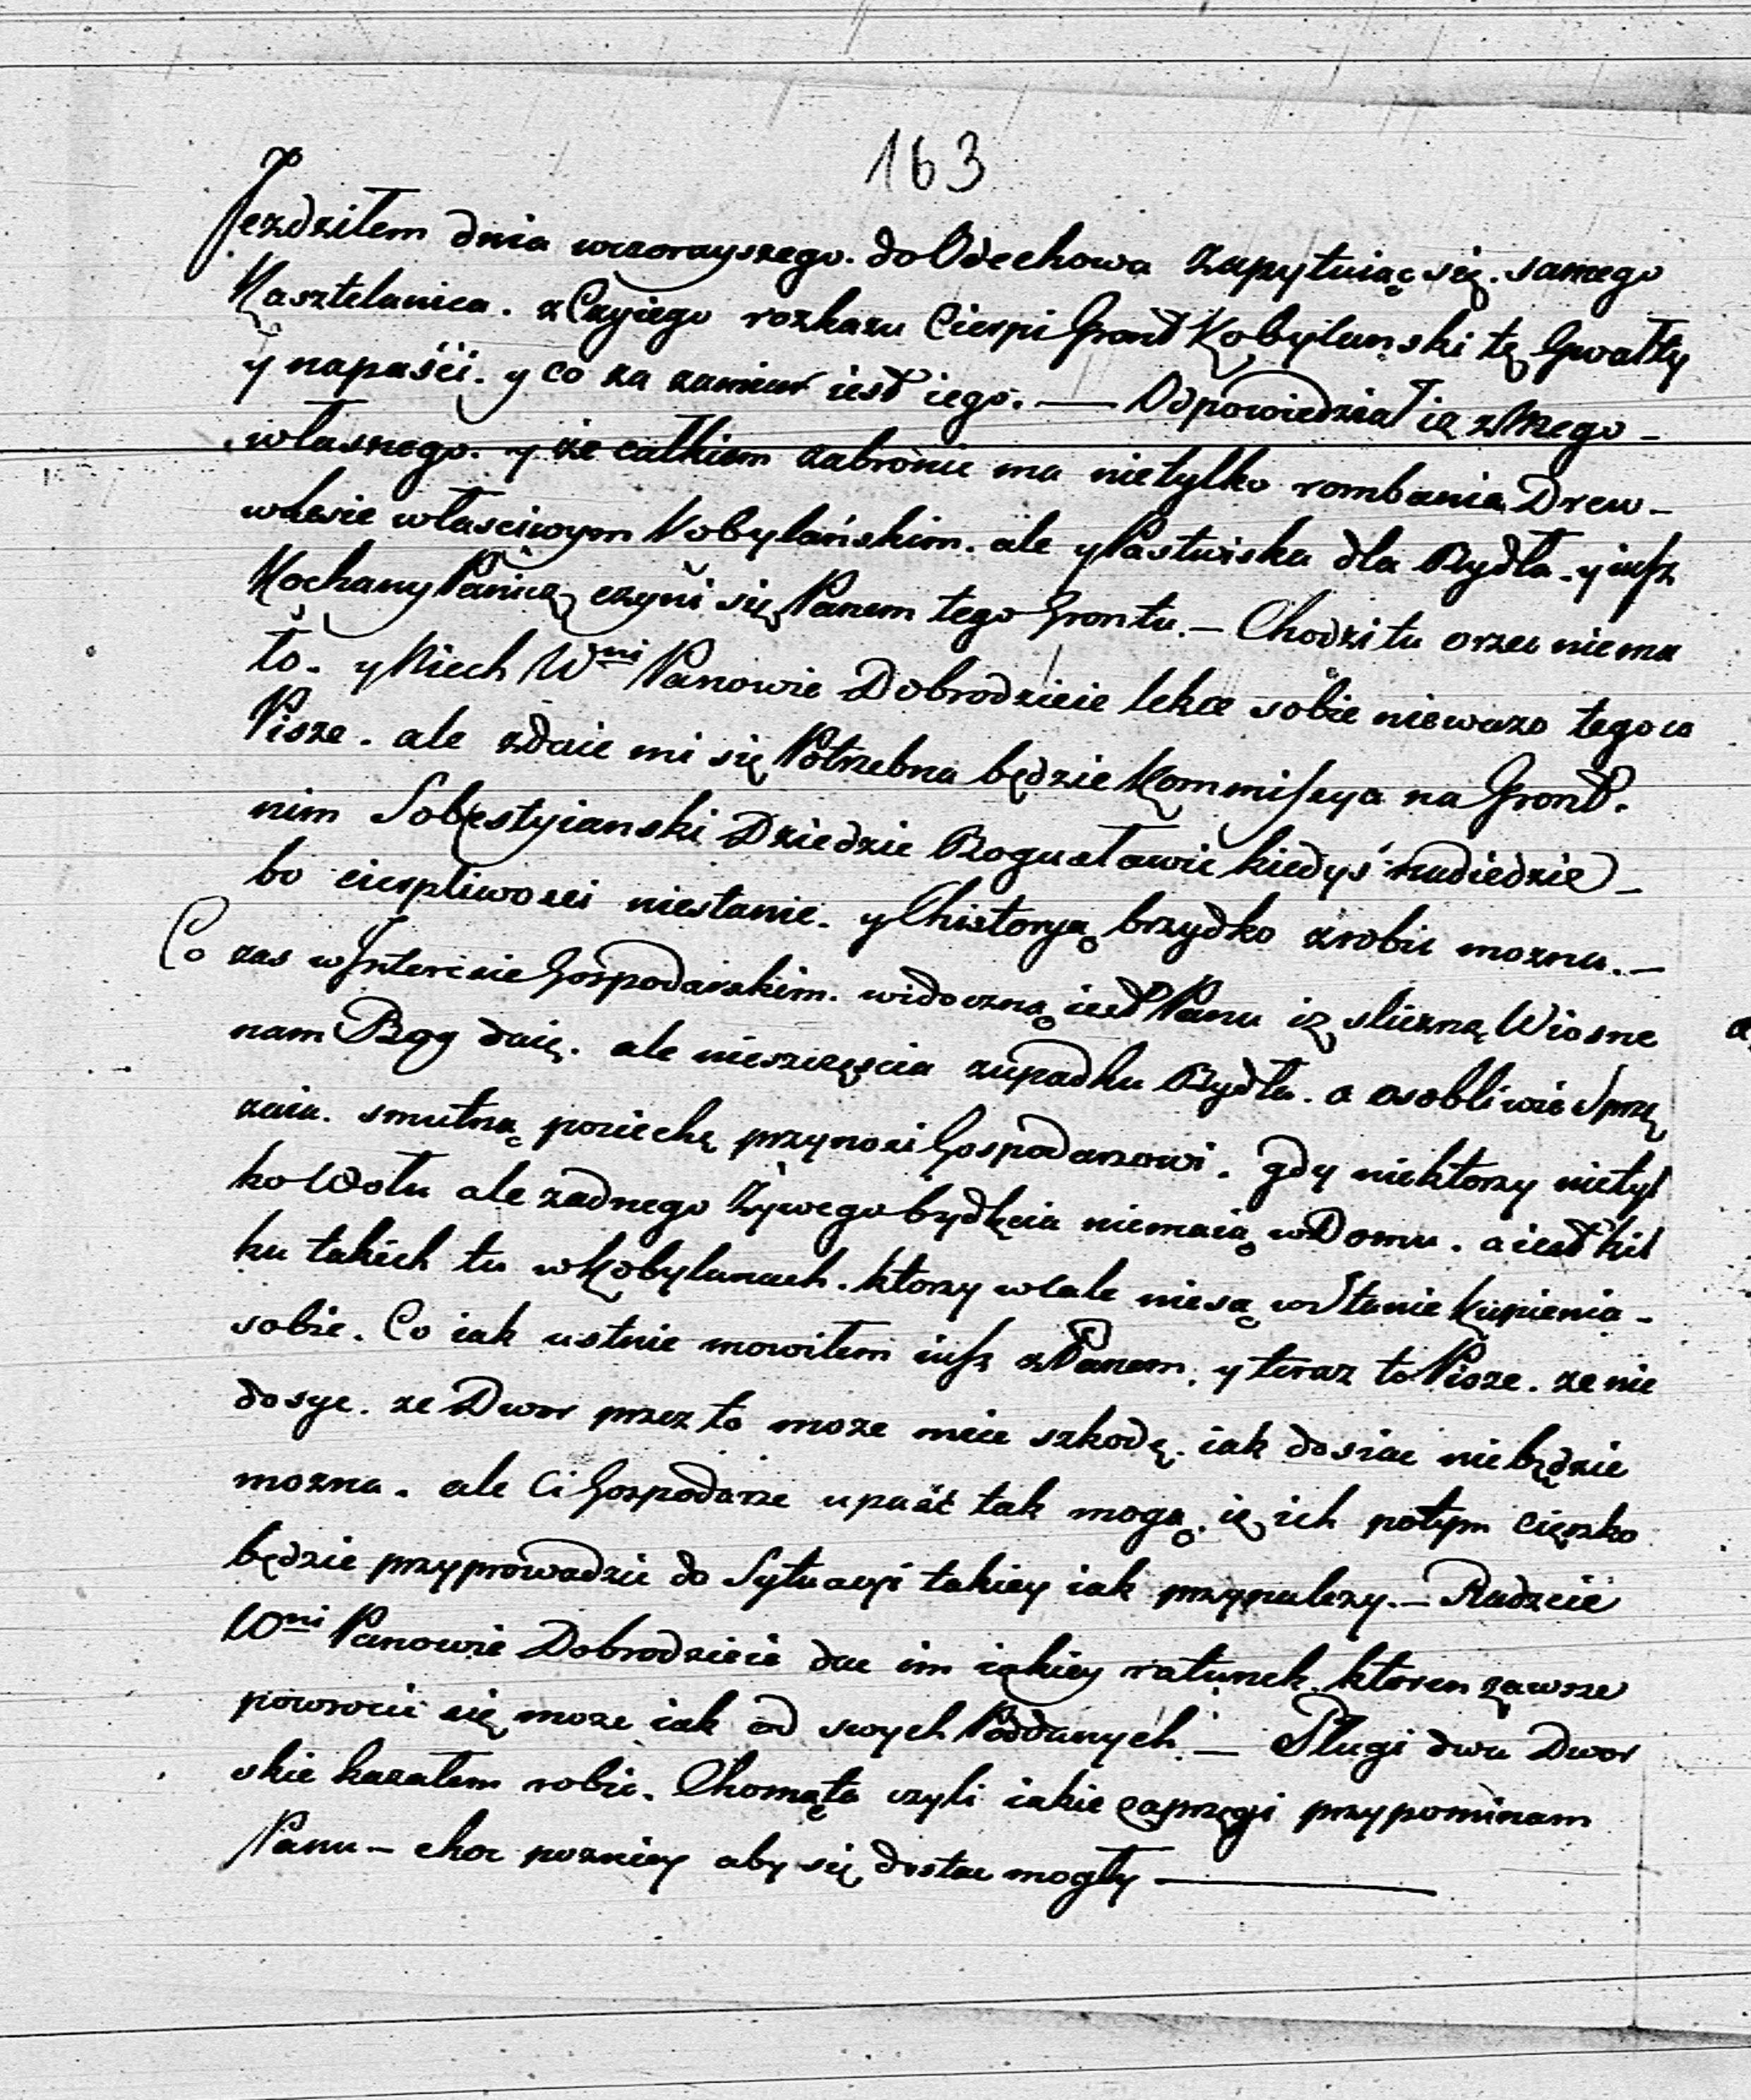 163
Jezdziłem dnia wczorayszego. do Odechowa Zapytuiąc się. samego
Kasztelanica. z Czyiego rozkazu Cierpi Gront Kobylanski tę Gwałty
y napaści. y co za zamiar iest iego. — Odpowiedział iż z Mego –
własnego. y że całkiem zabronic ma nietylko rombania Drew –
w Lesie własciwym Kobylańskim. ale y Pastwiska dla Bydła. y iusz
Kochany Panicz czyni się Panem tego Grontu. – Chodzi tu orzec niema
to. y Niech Wni Panowie Dobrodzieie lekce sobie niewazo tego co
Pisze. ale zdaie mi się Potrzebna będzie Kommissya na Gront.
nim Sobestyianski Dziedzic Bogusławic kiedyś nadiedzie –
bo cierpliwosci niestanie. y Chistoryą brzydko zrobic mozna. –
Co zas w Interesie Gospodarskim. widoczną iest Panu iż sliczną Wiosne
nam Bog daię. ale nieszczęscia zupadku Bydła. a osobliwie Sprzę
zaia. smutną pociechę przynosi Gospodarzowi. gdy niektorzy nietyl
ko Wołu ale zadnego Zywego bydlęcia niemaią w Domu. a iest kil
ku takich tu w Kobylanach. ktorzy wcale niesą w Stanie kupienia –
sobie. Co iak ustnie mowiłem iusz z Panem. y teraz to Pisze. ze nie
dosyc. ze Dwor przez to moze miec szkodę. iak dosiac niebędzie
mozna. ale Ci Gospodarze upaść tak mogą. iż ich potym cięzko
będzie przyprowadzic do Sytuacyi takiey iak przynalezy. – Radzcie
Wni Panowie Dobrodzieie dac im iakiey ratunek. ktoren zawsze
powrocic się moze iak od swych Poddanych. — Pługi dwa Dwor
skie kazałem robic. Chomąta czyli iakie zaprzęgi przypominam
Panu – choc pozniey aby się dostac mogły —